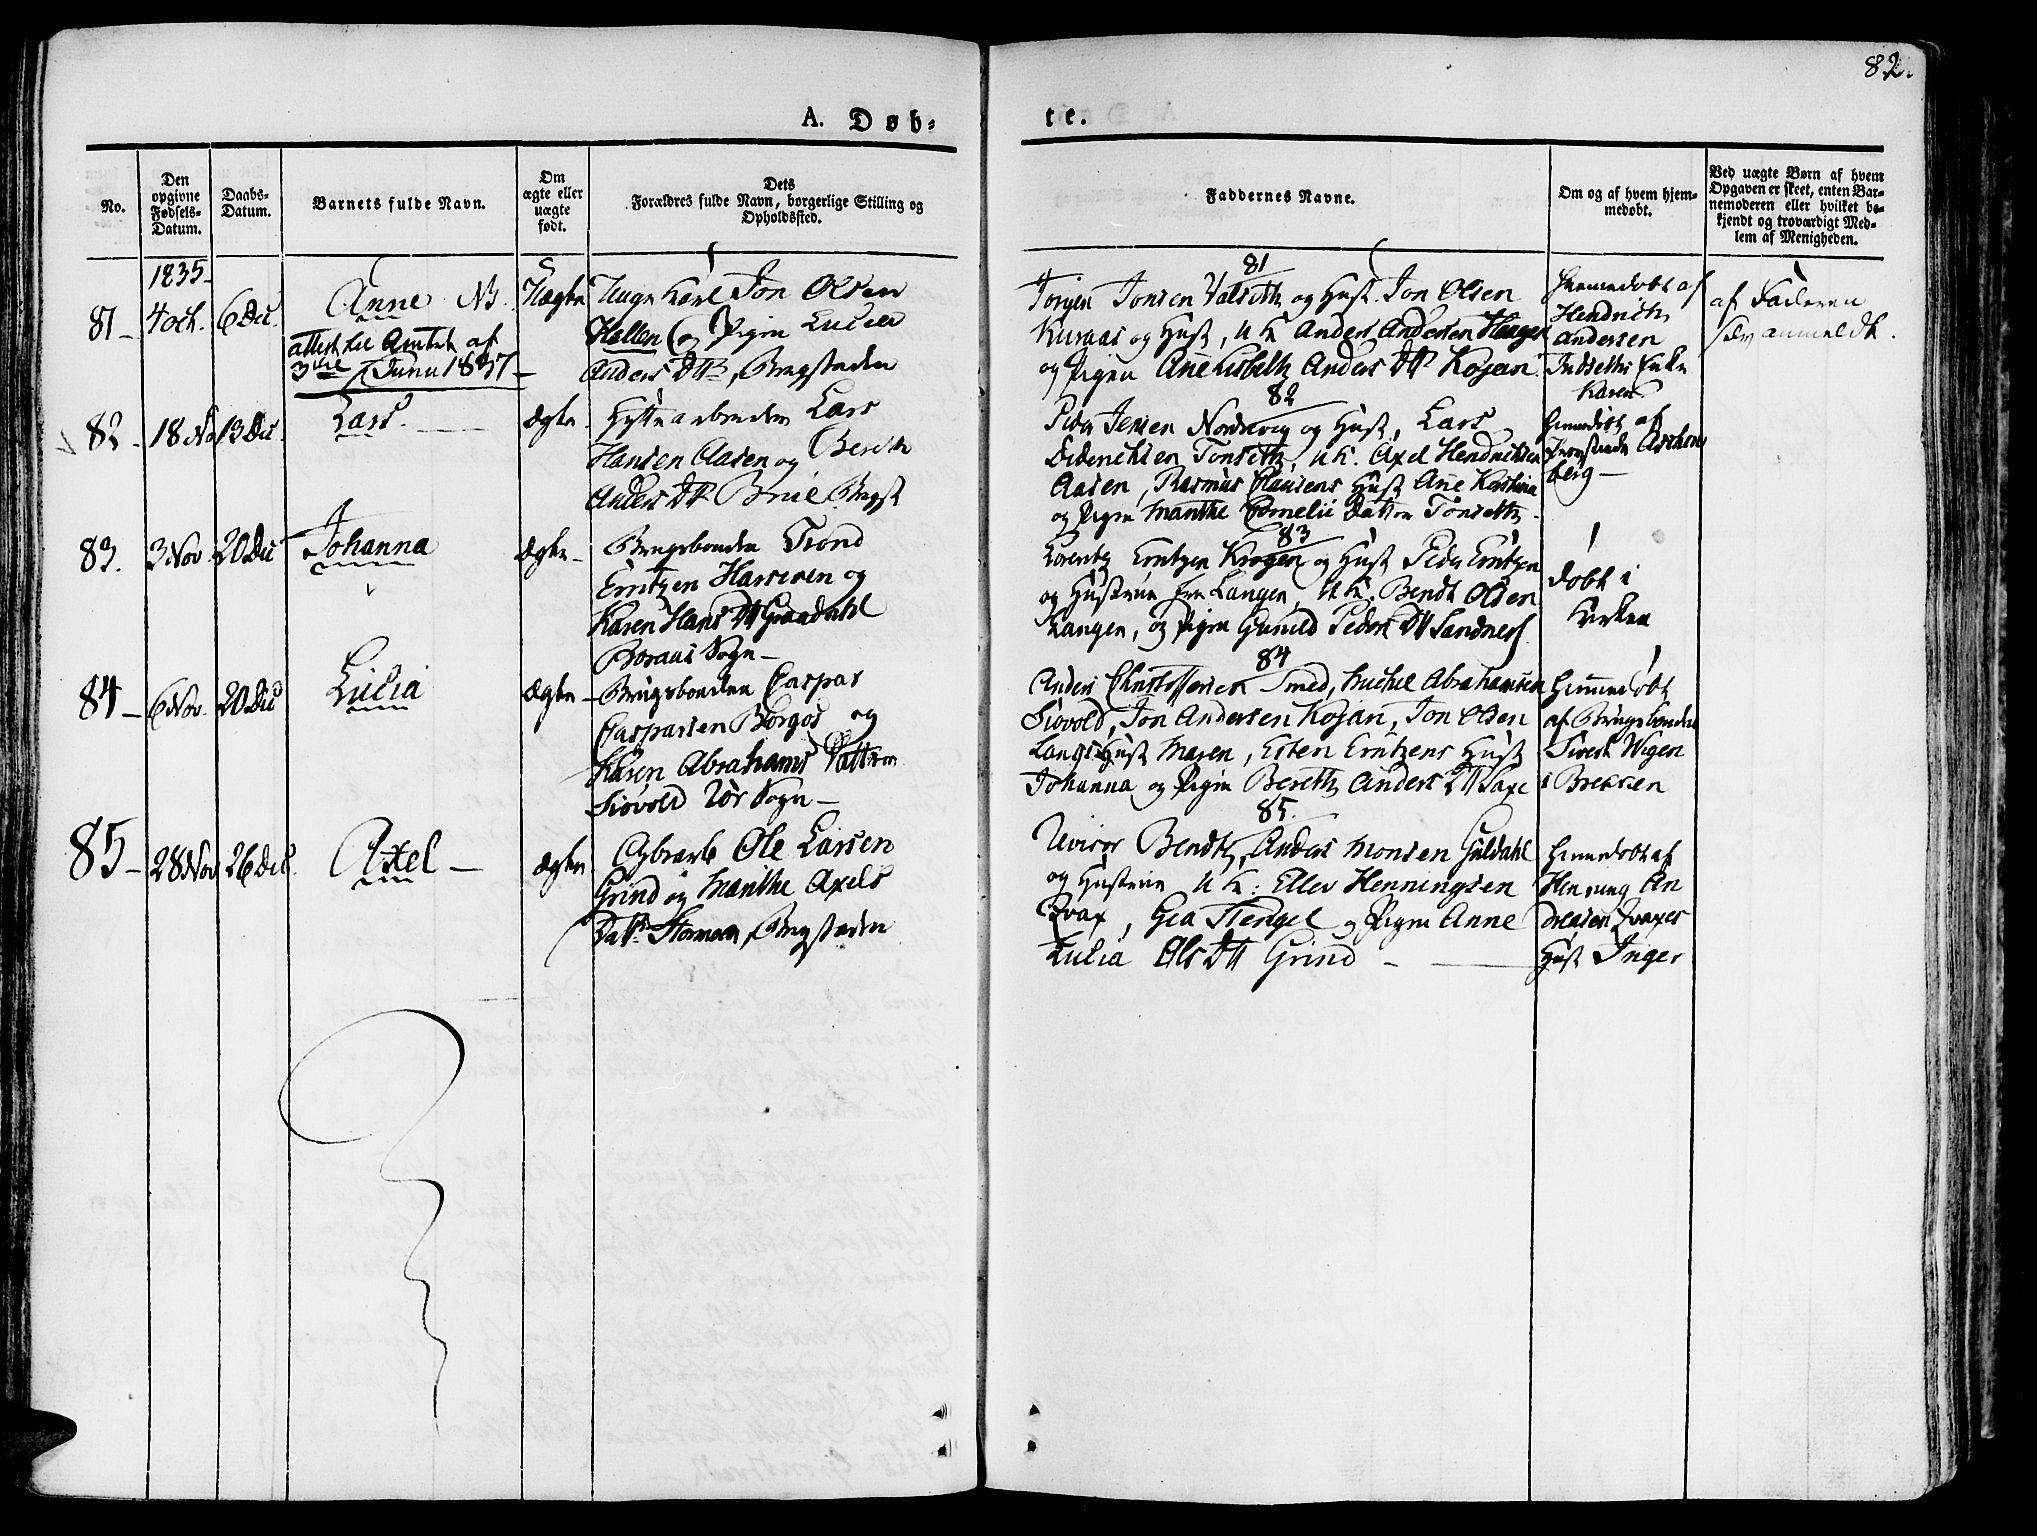 82.
A. Døb-
te.
No.
Den
opgivne
Fødsels-
Datum.
Daabs-
Datum.
Barnets fulde Navn.
Om
ægte eller
uægte
født.
Dets
Forældres fulde Navn, borgerlige Stilling og
Opholdssted.
Faddernes Navne.
Om og af hvem hjem-
medøbt.
Ved uægte Børn af hvem
Opgaven er skeet, enten Bar-
nemoderen eller hvilket be-
kjendt og troværdigt Med-
lem af Menigheden.
1835
81 - 4 Oct. 6 Dec.
Anne NB.
attest til Amtet af
3die Junii 1837 -
Uægte
Unge Karl Jon Olsen
Hallen og Pigen Lucie
Anders Dtr, Bergstaden
81
Jørgen Jonsen Valseth og Hust. Jon Olsen
Kuraas og Hust, U K Anders Andersen Haagen
og Pigen Ane Lisbeth Anders Dtr Kojan
Hiemedøbt af
Hendrich
Andersen
Indseths Enke
Karen
af Faderen
selv anmeldt.
82 - 18 No 13 Dec.
Lars.
Ægte
Hyttearbeider Lars
Hansen Aasen og Bereth
Anders Dtr Brue Bergst
82
Peder Jensen Nordvig og Hust, Lars
Diderichsen Tonseth, U K. Axel Hendrichsen
Aasen, Rasmus Clausens Hust Ane Kirstina
og Pigen Marithe Cornelii Datter Tonseth -
Hiemedøbt af
Aschen
berg -
83. 3 Nov 20 Dec
Johanna
Ægte -
Brugsbonden Trond
Erntzen Harsiøen og
Karen Hans Dtr Graadahl
Boraas Sogn -
83
Lorentz Erntzen Krogen og Hust Peder Erntzen
og Hustrue fra Langen, U K. Bendt Olsen
Langen, og Pigen Gunild Peders Dtr Sandnes
døbt i
Kirken
84 - 6 Nov. 20 Dec
Lucia
Ægte -
Brugsbonden Caspar
Casparsen Borgos og
Karen Abrahams Datter
Siovold Aas Sogn -
84
Anders Christoffersen Smed, Michel Abrahamsen
Siovold, Jon Andersen Kojan, Jon Olsen
Langs Hust Maren, Esten Erntzens Hust
Johanna og Pigen Bereth Anders Dtr Saxe
Hiemedøbt
af Brugsbonden
Sivert Wigen
i Brekken
85 - 28 Nov 26 Dec.
Axel -
Ægte
Ole Larsen
Grind og Marithe Axels
Datr Stormoen, Bergstaden
85.
Revisor Bendtz, Anders Monsen Guldahl
og Hustrue U K: Ellev Henningsen
Zvax, Gea Stengel og Pigen Anne
Lucia Ols Dtr Grind -
Hiemedøbt af
Henning An
dreasen Zvaxes
Hust Inger